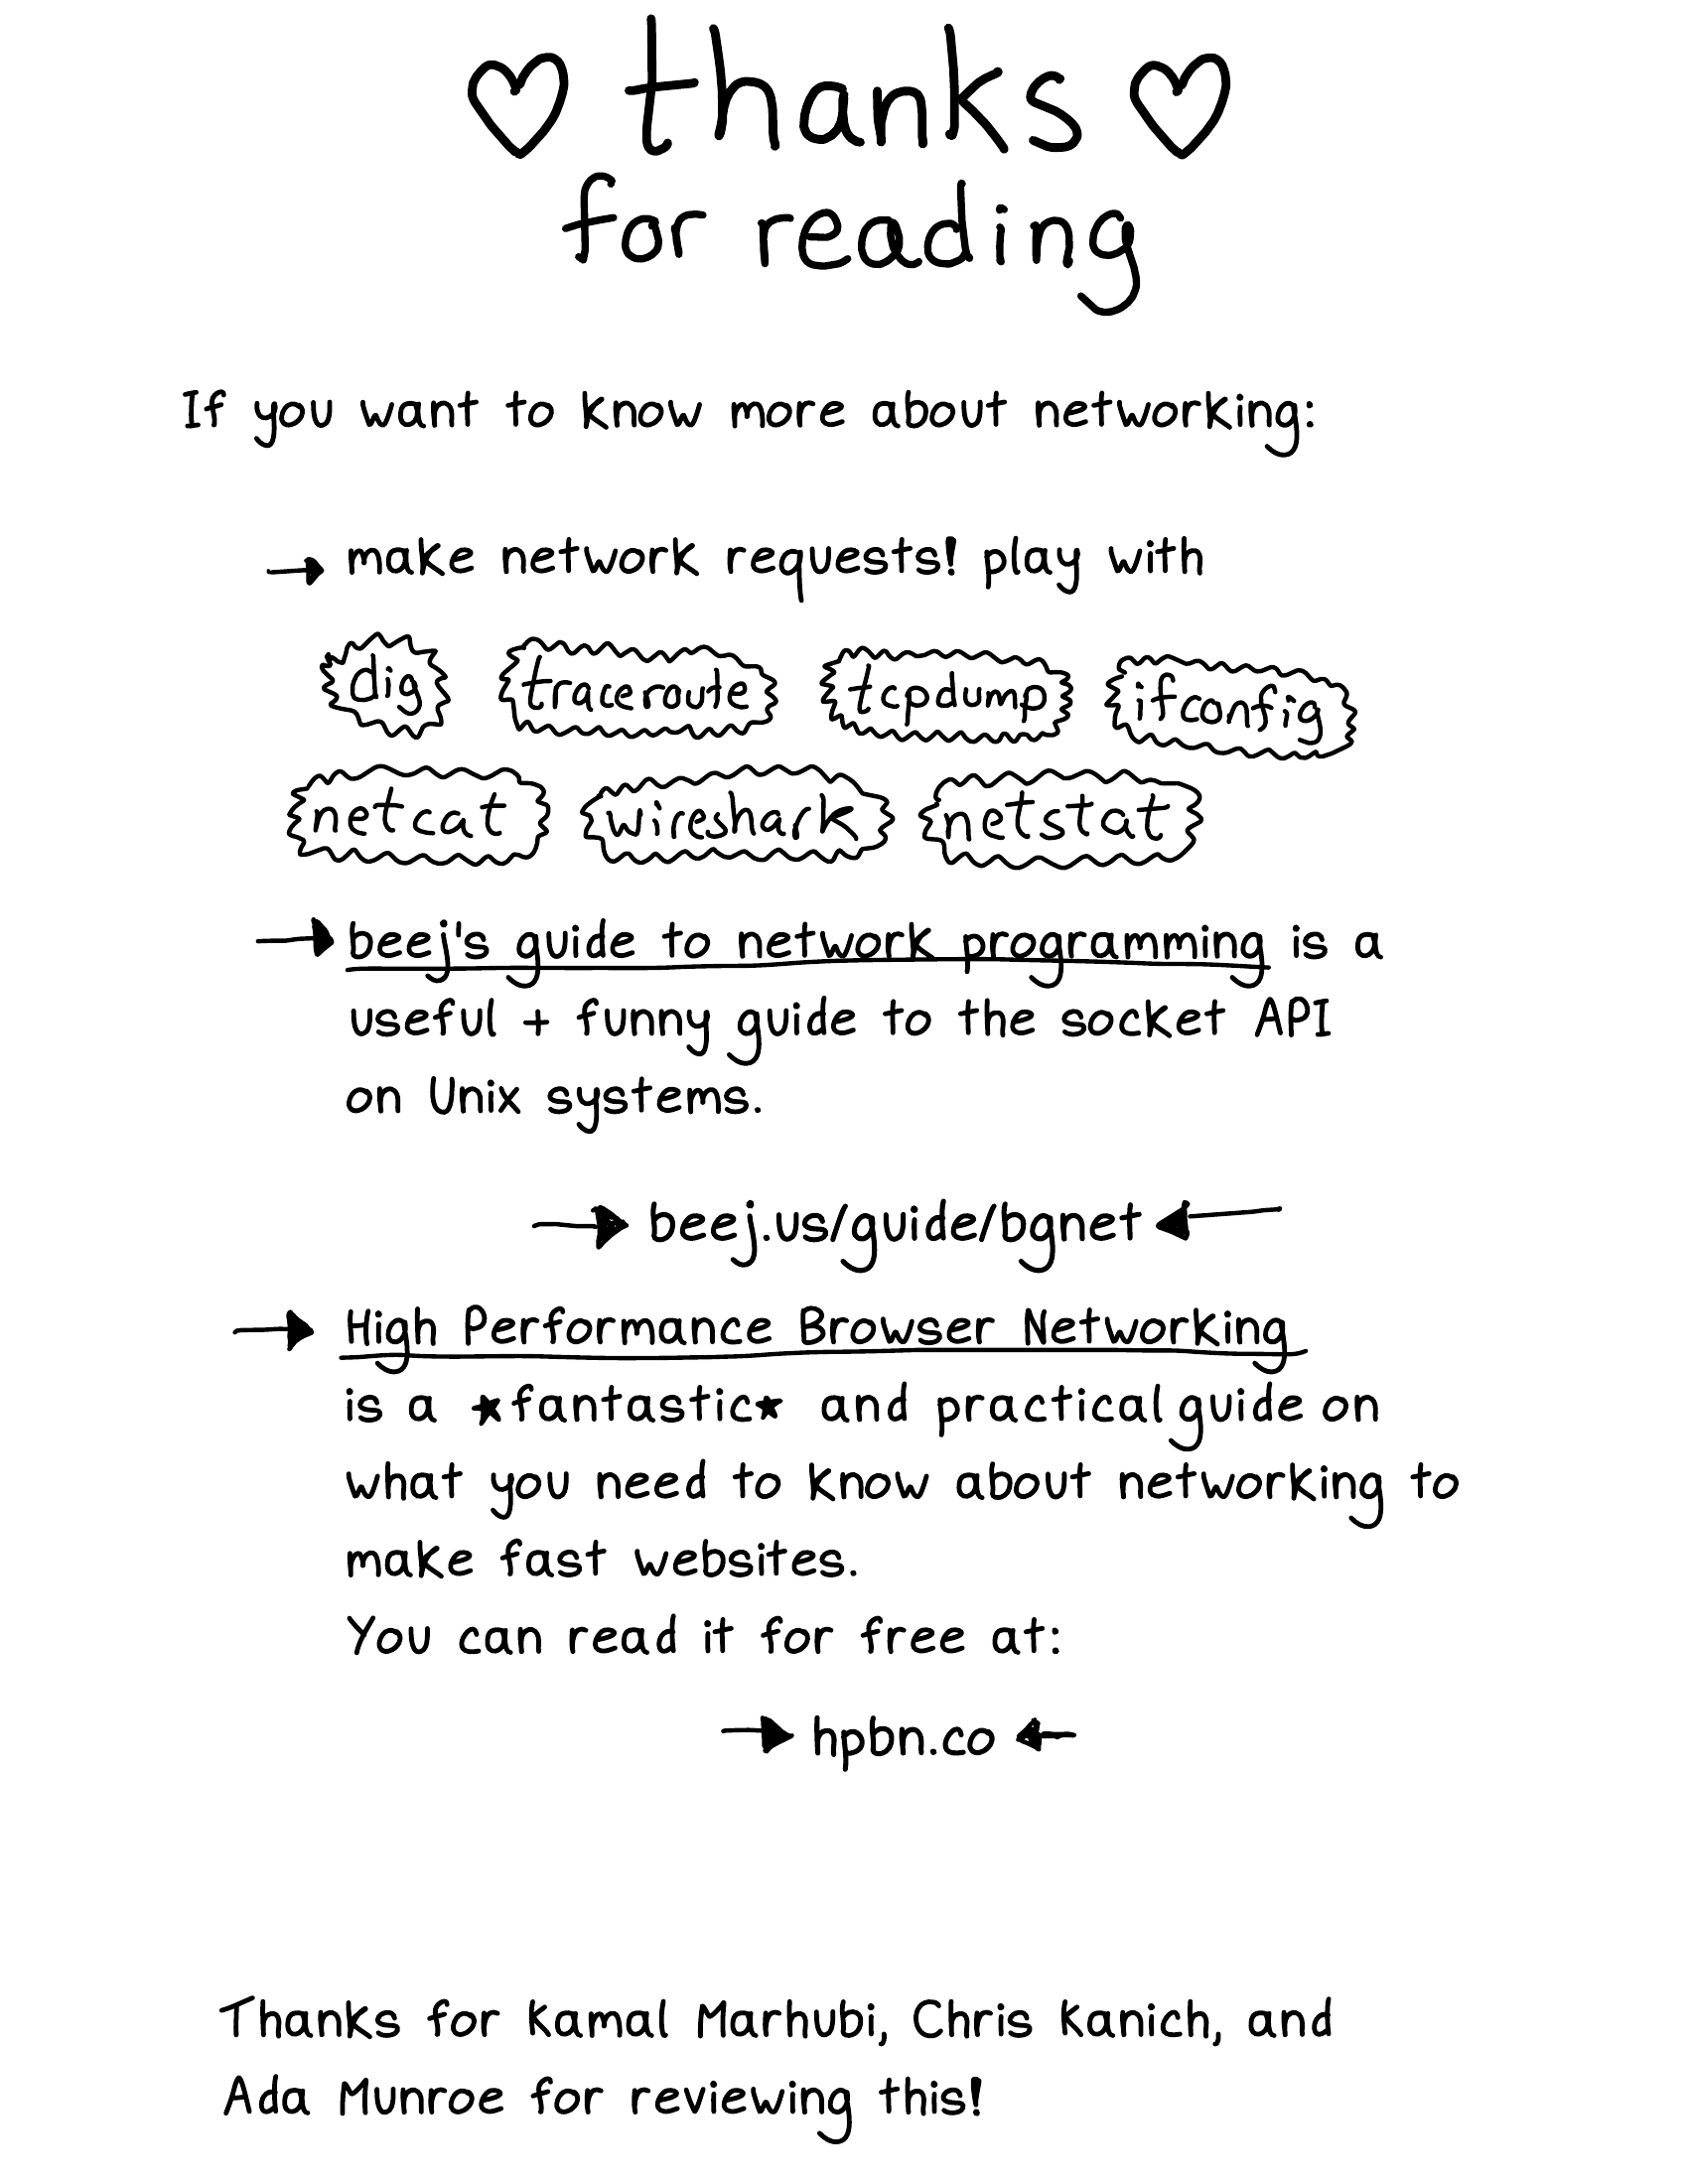 ♡ thanks ♡
for reading
If you want to know more about networking:
→ make network requests! play with
dig traceroute tcpdump ifconfig
netcat wireshark netstat
→ beej's guide to network programming is a
useful + funny guide to the socket API
on Unix systems.
→ beej.us/guide/bgnet ←
→ High Performance Browser Networking
is a ★fantastic★ and practical guide on
what you need to know about networking to
make fast websites.
You can read it for free at:
→ hpbn.co ←
Thanks for Kamal Marhubi, Chris Kanich, and
Ada Munroe for reviewing this!